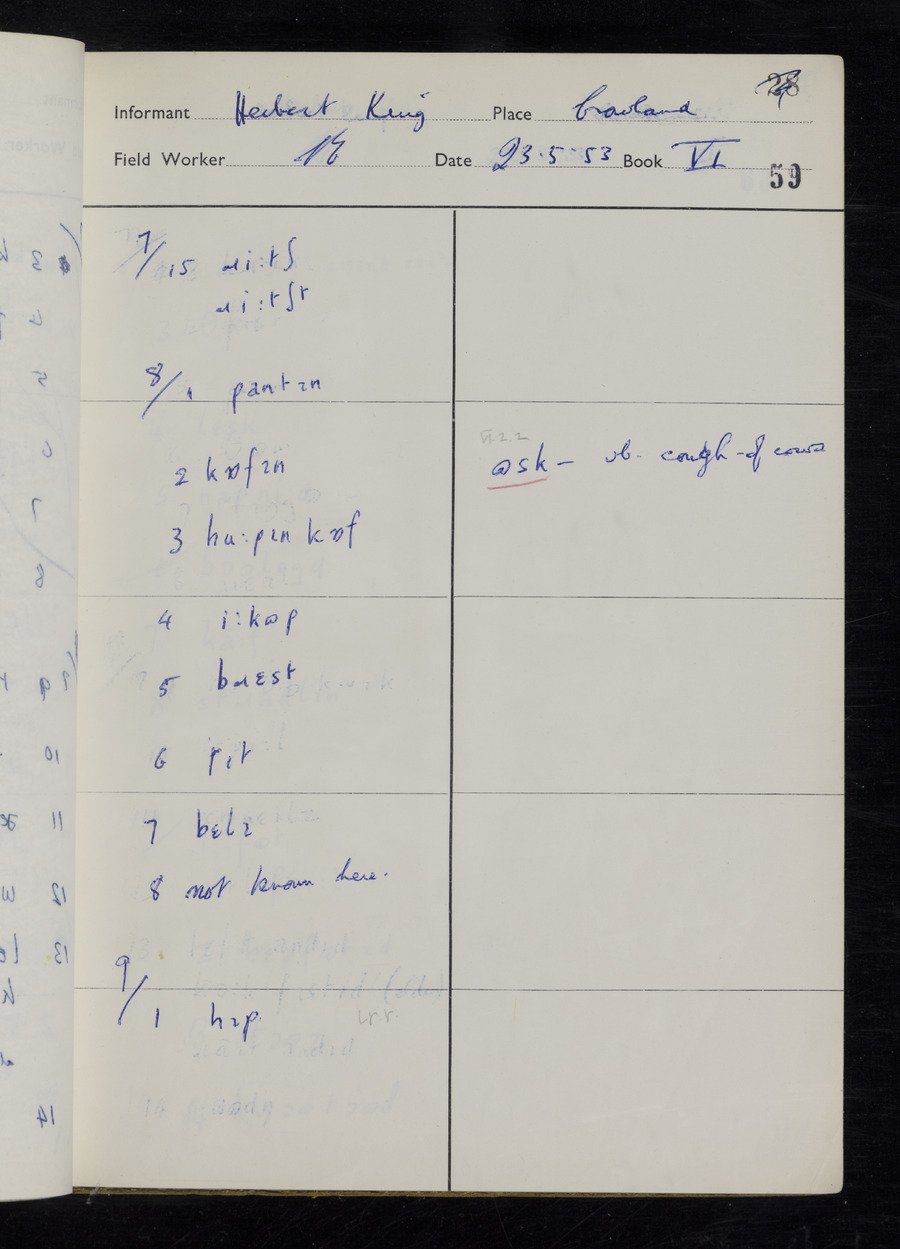 28
Informant Herbert King Place Crowland
Field Worker Date 23.5.53 Book VI
59
7/15 ɹi:tʃ
ɹi:tʃt
8/1 pantɪn
VI.2.2
ɷsk – vb. cough – of cows
2 kɒfɪn
3 hu:pɪn kɒf
4 i:kɷp
5 bɹɛst
6 tɪt
7 bɛlɪ
8 not known here.
9/1 hɪp